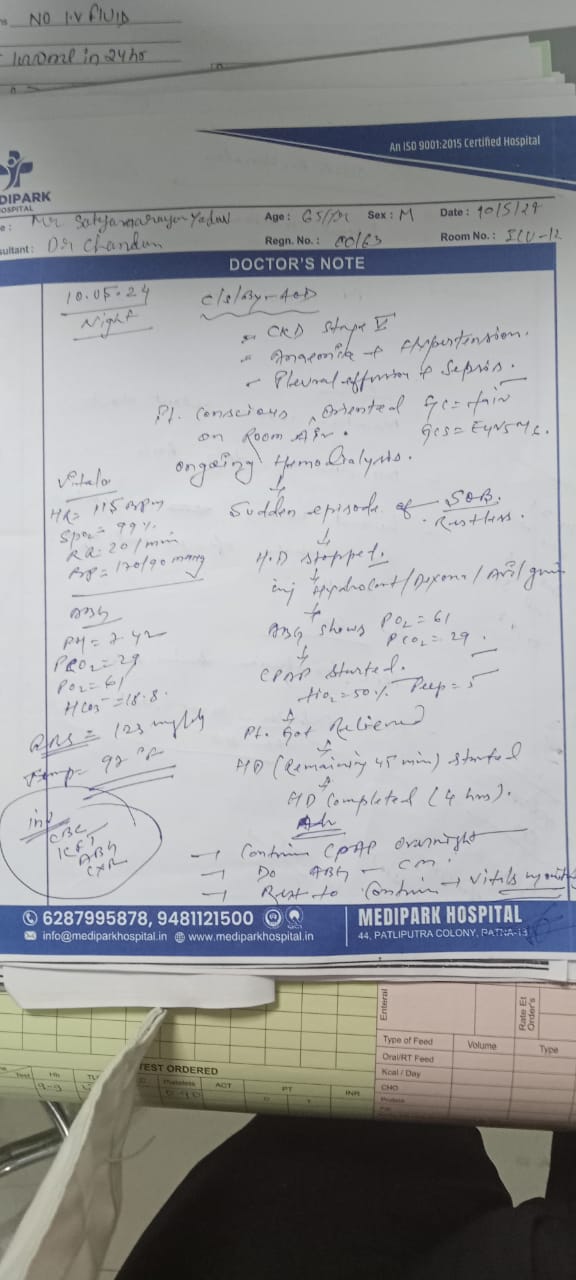 NO I.V FLUID
in 24 hr
An ISO 9001:2015 Certified Hospital
DIPARK
HOSPITAL
Mr Satyanarayan Yadav Age: 65/M Sex: M Date: 10/5/24
sultant: Dr Chandan Regn. No.: 80/63 Room No.: ICU-12
DOCTOR'S NOTE
10.05.24 c/s/By-AOD
Night
CKD Stage V
Hypertension.
Pleural effusion Sepsis.
Pt. Conscious, Oriented GC = fair
on Room Air. GCS = E4V5M6.
ongoing Hemodialysis.
Vitals
HR = 115 Bpm Sudden episode of SOB.
SPO2 = 99% Restless.
RR = 20/min H.D stopped.
BP = 170/90 mmHg
inj Hydrocort/Dexona/Avil given
ABG ABG shows PO2 = 61
PH = 7.42 PCO2 = 29.
PCO2 = 29
PO2 = 61 CPAP Started.
HCO3 = 18.8 FiO2 = 50% Peep = 5
RBS = 123 mg/dl Pt. Got Relieved
Temp = 92 °F HD (Remaining 45 min) started
HD Completed (4 hrs).
inv Adv
CBC → Continue CPAP overnight
KFT → Do ABG - CM
ABG → Rest to Continue → Vitals
CXR
6287995878, 9481121500 MEDIPARK HOSPITAL
info@mediparkhospital.in www.mediparkhospital.in 44, PATLIPUTRA COLONY, PATNA-13
Enteral
Rate Et
Order's
Type of Feed Volume Type
Oral/RT Feed
Kcal / Day
CHO
TEST ORDERED
Test Hb TL Platelets ACT PT INR
9.9